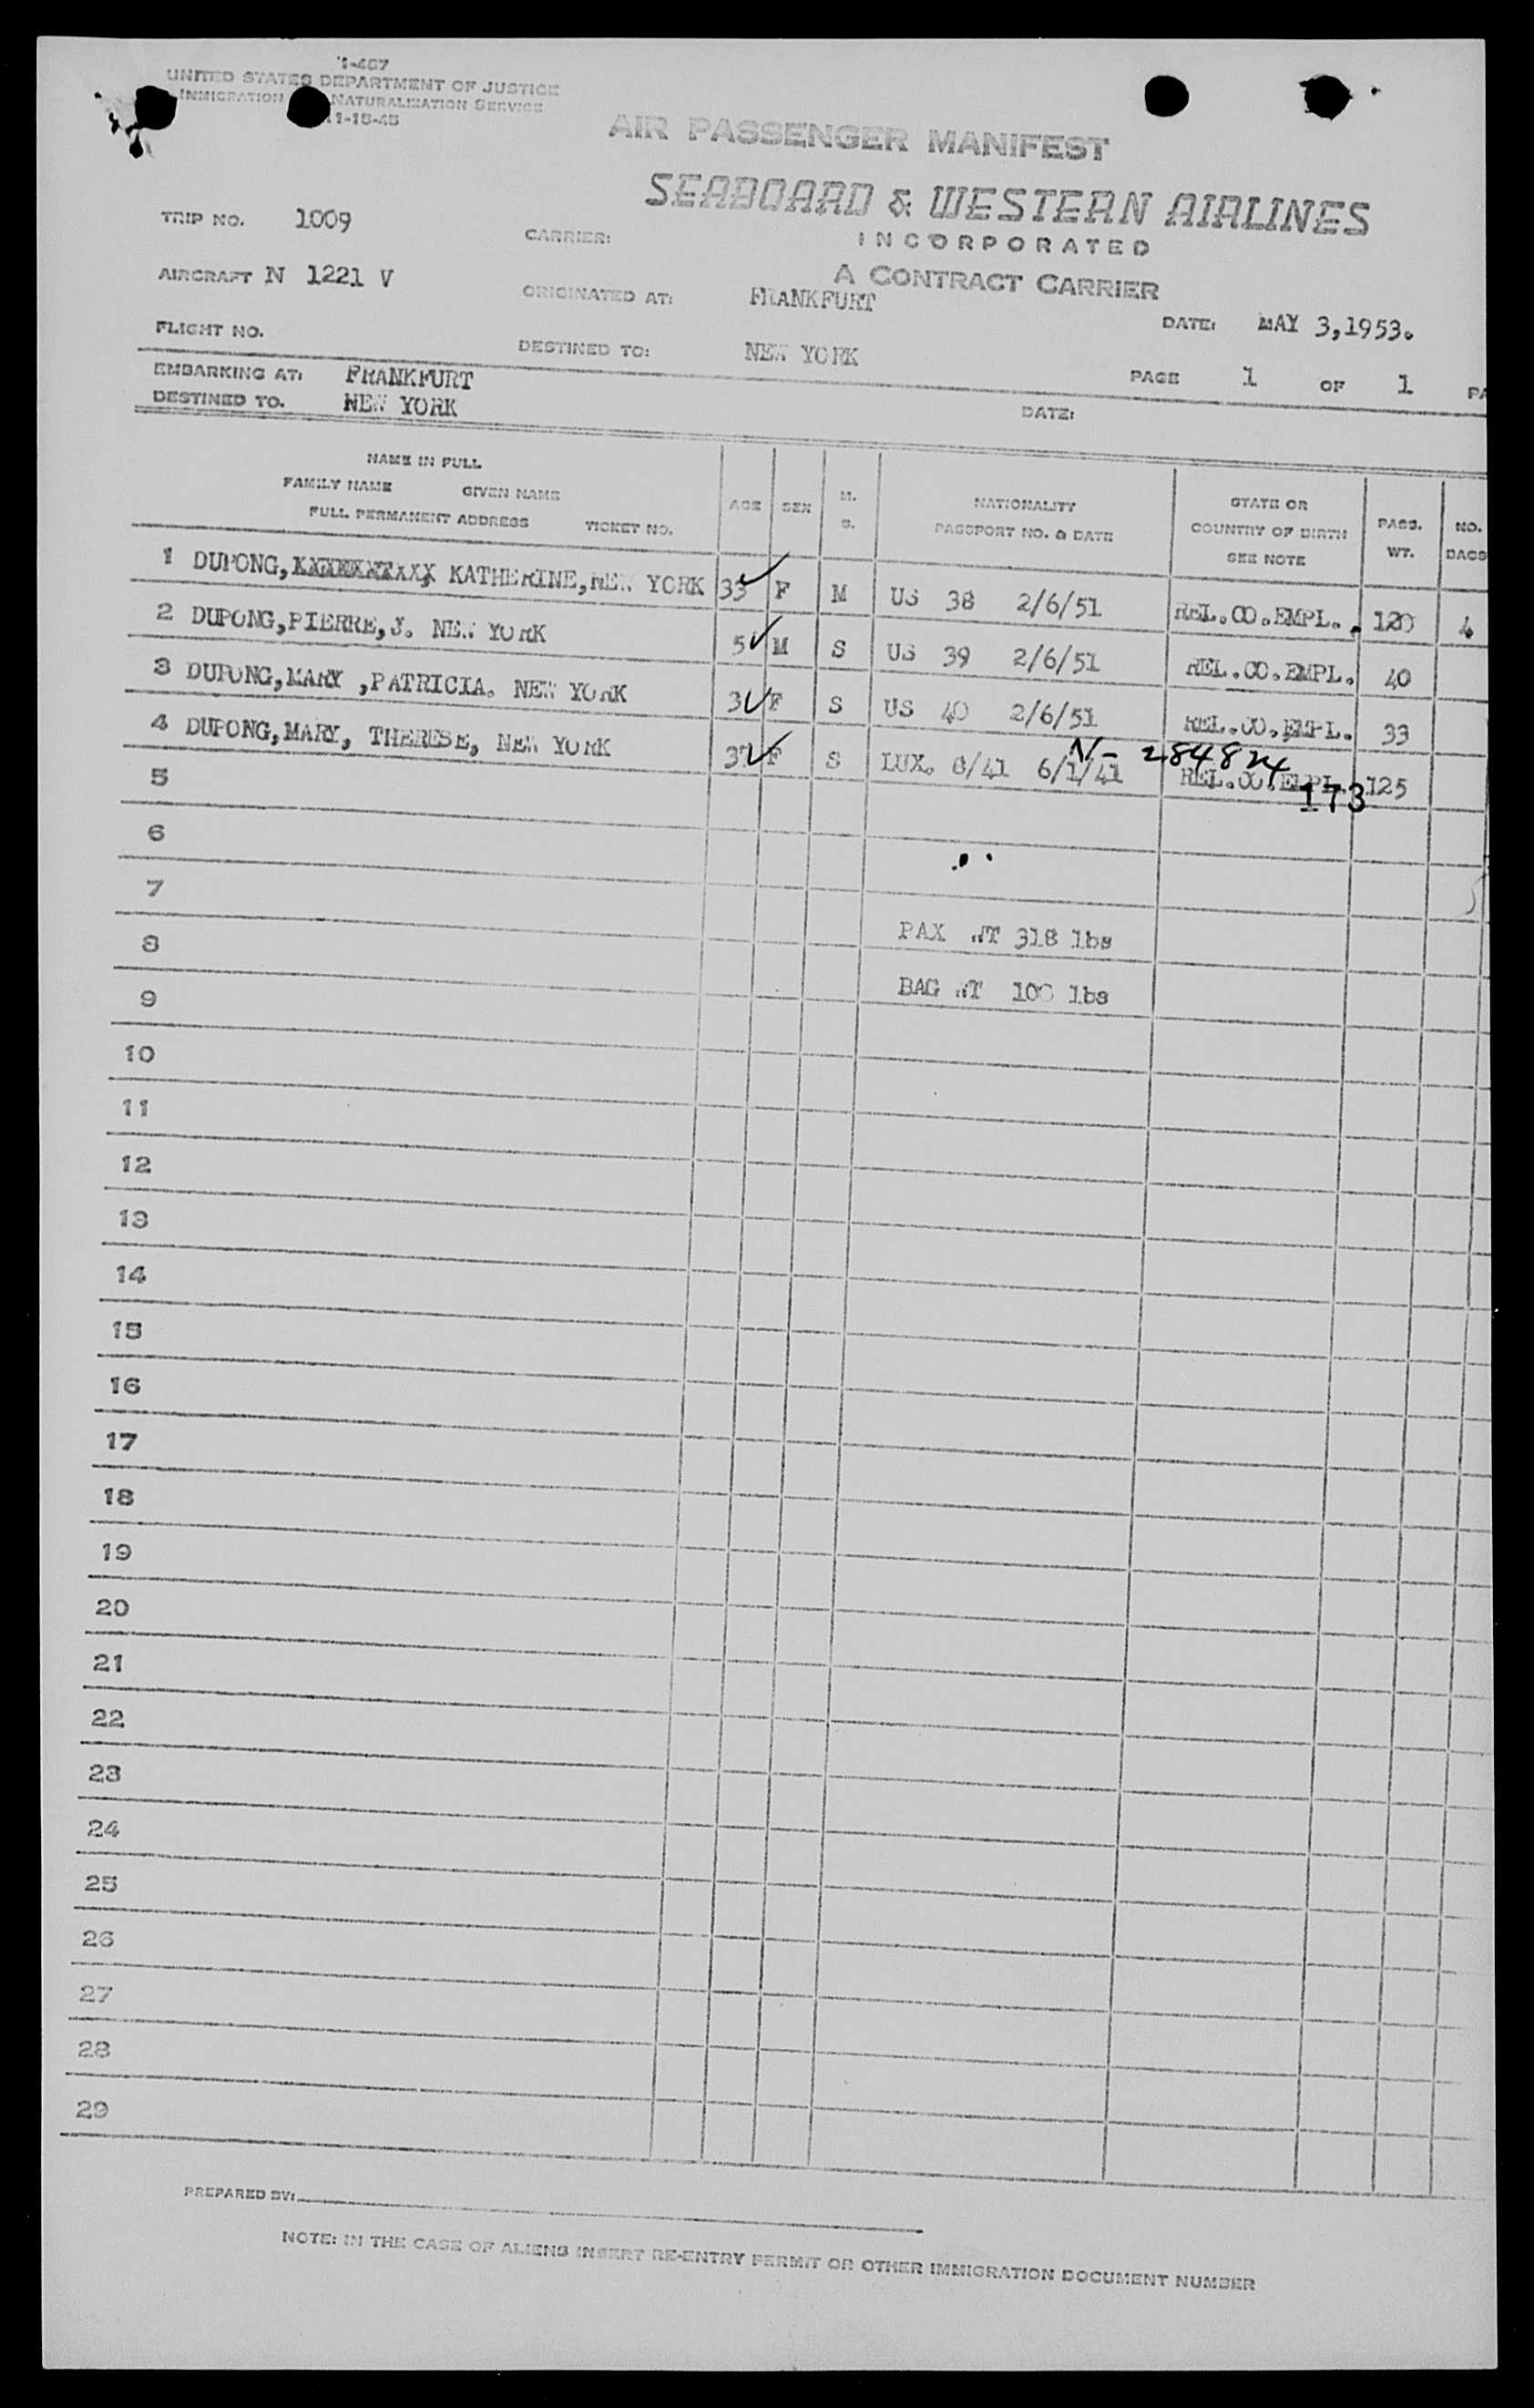 I-467
UNITED STATES DEPARTMENT OF JUSTICE
IMMIGRATION NATURALIZATION SERVICE
11-15-45
AIR PASSENGER MANIFEST
SEABOARD & WESTERN AIRLINES
INCORPORATED
A CONTRACT CARRIER
TRIP NO. 1009 CARRIER:
AIRCRAFT N 1221 V ORIGINATED AT: FRANKFURT
FLIGHT NO. DESTINED TO: NEW YORK DATE: MAY 3,1953.
EMBARKING AT: FRANKFURT PAGE 1 OF 1 PA
DESTINED TO. NEW YORK DATE:
NAME IN FULL
FAMILY NAME GIVEN NAME
FULL PERMANENT ADDRESS TICKET NO.
AGE
SEX
M.
S.
NATIONALITY
PASSPORT NO. & DATE
STATE OR
COUNTRY OF BIRTH
SEE NOTE
PASS.
WT.
NO.
BAGS
1 DUPONG, KATHERINE, NEW YORK 33 F M US 38 2/6/51 REL.CO.EMPL. 120 4
2 DUPONG,PIERRE,J. NEW YORK 5 M S US 39 2/6/51 REL.CO.EMPL. 40
3 DUPONG,MARY ,PATRICIA. NEW YORK 3 F S US 40 2/6/51 REL.CO.EMPL. 33
4 DUPONG,MARY, THERESE, NEW YORK 37 F S LUX. 8/41 6/1/41 REL.CO.EMPL. 125
N- 284824
173
5
6
7
PAX WT 318 lbs
8
BAG WT 100 lbs
9
10
11
12
13
14
15
16
17
18
19
20
21
22
23
24
25
26
27
28
29
PREPARED BY:
NOTE: IN THE CASE OF ALIENS INSERT RE-ENTRY PERMIT OR OTHER IMMIGRATION DOCUMENT NUMBER